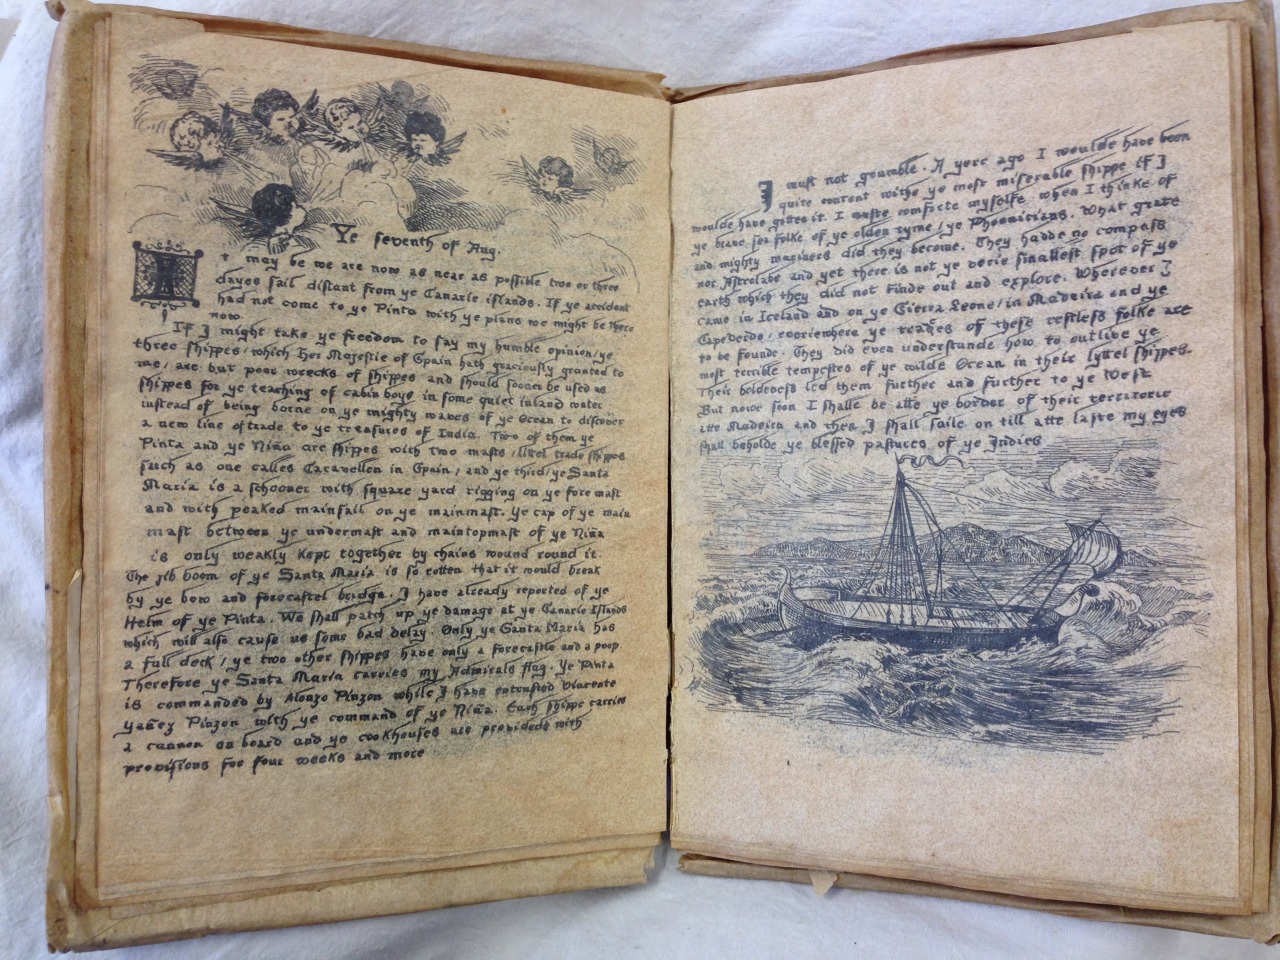 Ye seventh of Aug.
I t may be we are now as near as possible two or three
dayes sail distant from ye Canarie islands. If ye accident
had not come to ye Pinto with ye plans we might be there
now.
If I might take ye freedom to say my humble opinion, ye
three shippes, which Her Majestie of Spain hath graciously granted to
me, are but poor wrecks of shippes and should sooner be used as
shippes for ye teaching of cabin boys in some quiet inland water
instead of being borne on ye mighty waves of ye Ocean to discover
a new line of trade to ye treasures of India. Two of them ye
Pinta and ye Niña are shippes with two masts, littel trade shippes
such as one calles Caravellen in Spain, and ye third, ye Santa
Maria is a schooner with square yard rigging on ye fore mast
and with peaked mainsail on ye mainmast. Ye cap of ye main
mast between ye undermast and maintopmast of ye Niña
is only weakly kept together by chains wound round it.
The jib boom of ye Santa Maria is so rotten that it would break
by ye bow and forecastel bridge. I have already reported of ye
Helm of ye Pinta. We shall patch up ye damage at ye Canarie Islands
which will also cause us some bad delay. Only ye Santa Maria has
a full deck, ye two other shippes have only a forecastle and a poop
Therefore ye Santa Maria carries my Admirals flag. Ye Pinta
is commanded by Alonzo Pinzon while I have entrusted Vincente
Yañez Pinzon with ye command of ye Niña. Each shippe carries
a cannon on board and ye cookhouses are provideds with
provisions for four weeks and more
I must not grumble. A yere ago I woulde have been
quite content withe ye most miserable shippe if I
woulde have gotten it. I muste comforte myselfe when I thinke of
ye brave sea folke of ye olden tyme, ye Phoenitians. What grate
and mighty mariners did they become. They hadde no compass
nor Astrolabe and yet there is not ye verie smallest spot of ye
earth which they did not finde out and explore. Wherever I
came in Iceland and on ye Sierra Leone, in Madeira and ye
Capeverde, everiewhere ye traces of these restless folke are
to be founde. They did even understande how to outlive ye
most terrible tempestes of ye wilde Ocean in their lyttel shippes.
Their boldeness led them further and further to ye West
But nowe soon I shalle be atte ye border of their territorie
atte Madeira and then I shall saile on till atte laste my eyes
shall beholde ye blessed pastures of ye Indies